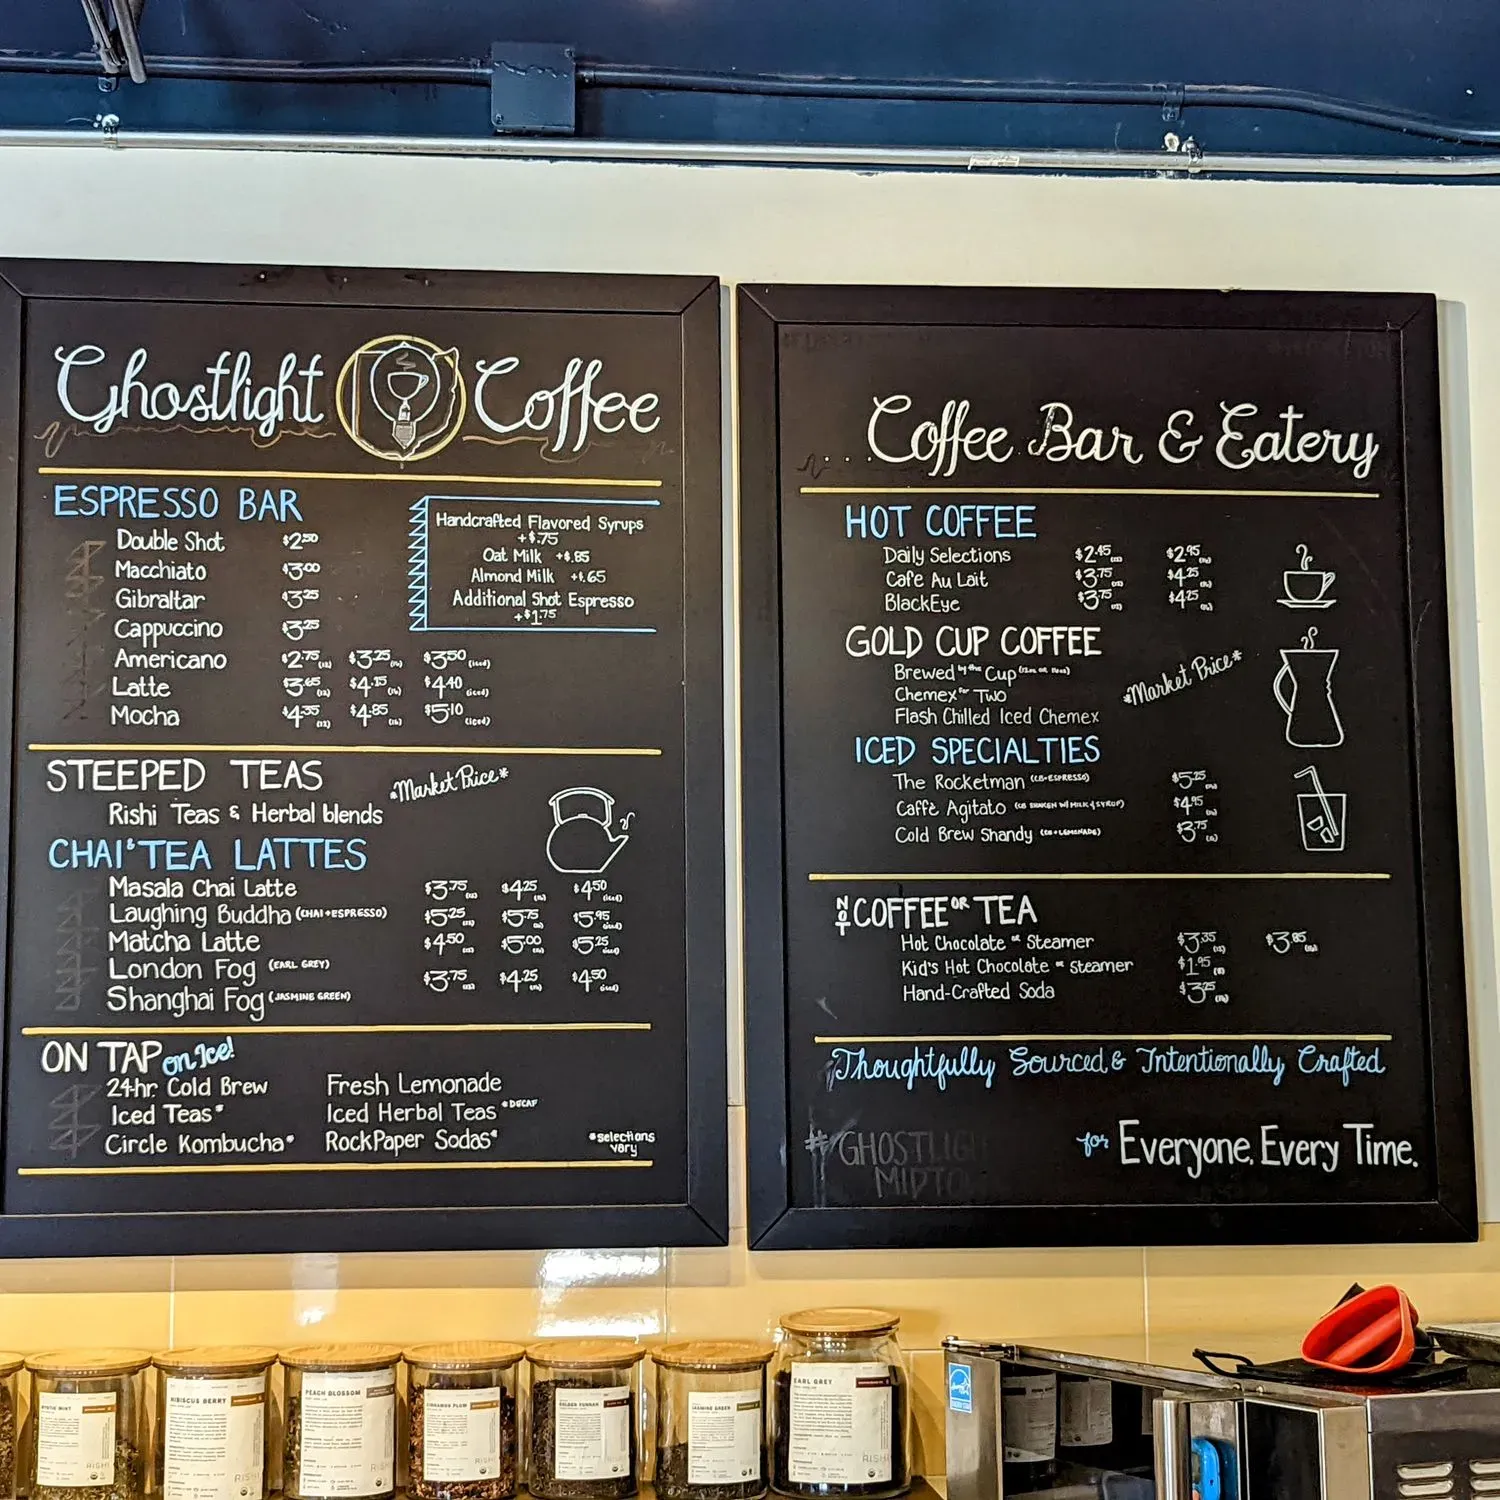 Ghostlight Coffee
ESPRESSO BAR
Double Shot $2.50
Macchiato $3.00
Gibraltar $3.25
Cappuccino $3.25
Americano $2.75 (12) $3.25 (16) $3.50 (iced)
Latte $3.65 (12) $4.15 (16) $4.40 (iced)
Mocha $4.35 (12) $4.85 (16) $5.10 (iced)
Handcrafted Flavored Syrups
+$.75
Oat Milk +$.85
Almond Milk +$.65
Additional Shot Espresso
+$1.75
STEEPED TEAS
*Market Price*
Rishi Teas & Herbal blends
CHAI & TEA LATTES
Masala Chai Latte $3.75 (12) $4.25 (16) $4.50 (iced)
Laughing Buddha (CHAI+ESPRESSO) $5.25 (12) $5.75 (16) $5.95 (iced)
Matcha Latte $4.50 (12) $5.00 (16) $5.25 (iced)
London Fog (EARL GREY) $3.75 (12) $4.25 (16) $4.50 (iced)
Shanghai Fog (JASMINE GREEN)
ON TAP on Ice!
24-hr. Cold Brew
Iced Teas*
Circle Kombucha*
Fresh Lemonade
Iced Herbal Teas *DECAF
RockPaper Sodas*
*selections
vary
...Coffee Bar & Eatery
HOT COFFEE
Daily Selections $2.45 (12) $2.95 (16)
Cafe Au Lait $3.75 (12) $4.25 (16)
BlackEye $3.75 (12) $4.25 (16)
GOLD CUP COFFEE
Brewed by the Cup (12oz or 16oz)
Chemex for Two
Flash Chilled Iced Chemex
*Market Price*
ICED SPECIALTIES
The Rocketman (CB+ESPRESSO) $5.25
Caffè Agitato (CB SHAKEN W/ MILK & SYRUP) $4.95
Cold Brew Shandy (CB+LEMONADE) $3.75
NOT COFFEE OR TEA
Hot Chocolate or Steamer $3.35 (12) $3.85 (16)
Kid's Hot Chocolate or Steamer $1.95 (8)
Hand-Crafted Soda $3.25 (16)
Thoughtfully Sourced & Intentionally Crafted
for Everyone, Every Time.
#GHOSTLIGH
MIDTO
MYSTIC MINT
HIBISCUS BERRY
RISHI
PEACH BLOSSOM
RISHI
CINNAMON PLUM
GOLDEN YUNNAN
JASMINE GREEN
EARL GREY
RISHI